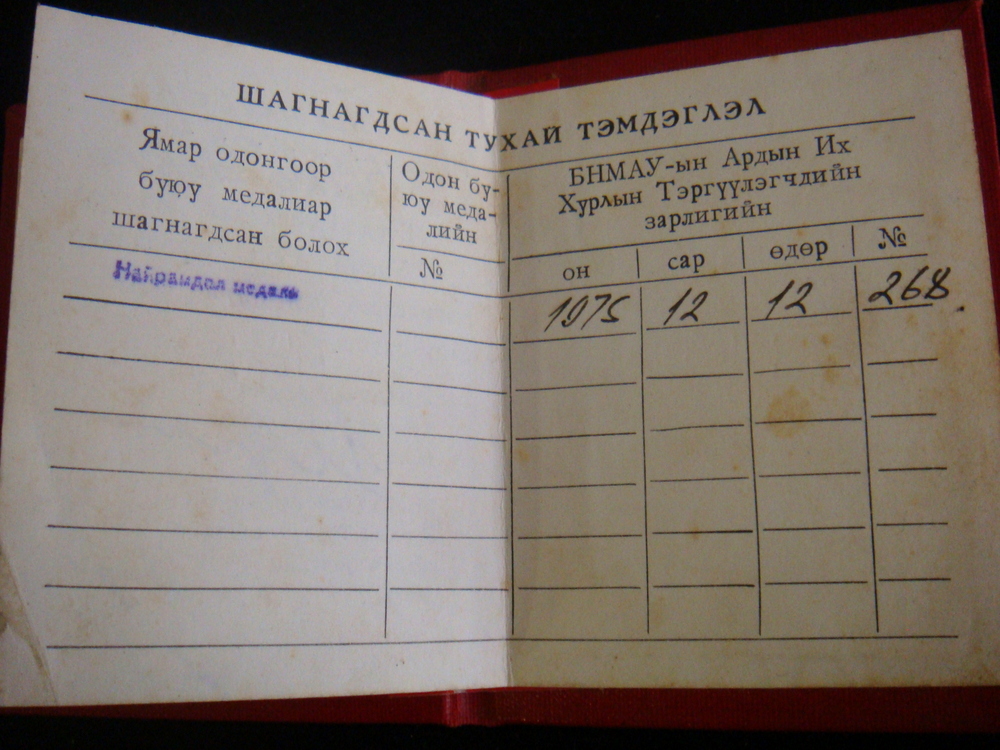 ШАГНАГДСАН ТУХАЙ ТЭМДЭГЛЭЛ
Ямар одонгоор
буюу медалиар
шагнагдсан болох
Одон бу-
юу меда-
лийн
№
БНМАУ-ын Ардын Их
Хурлын Тэргүүлэгчдийн
зарлигийн
он сар өдөр №
Найрамдал медаль
1975 12 12 268.